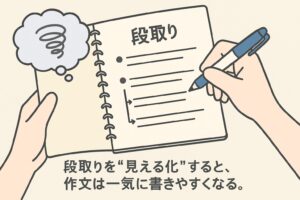 段取り
段取りを“見える化”すると、
作文は一気に書きやすくなる。